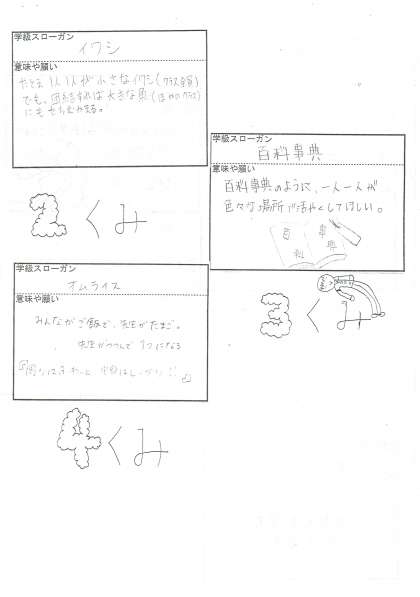 学級スローガン
イワシ
意味や願い
たとえ1人1人が小さなイワシ(クラス全員)
でも、団結すれば大きな魚(ほかのクラス)
にも
2くみ
学級スローガン
百科事典
意味や願い
百科事典のように、一人一人が
色々な場所で活やくしてほしい。
百科
事典
3くみ
学級スローガン
オムライス
意味や願い
みんながご飯で、先生がたまご。
先生がつつんで1つになる
『周りはふわっと 中身はしっかり!!』
4くみ